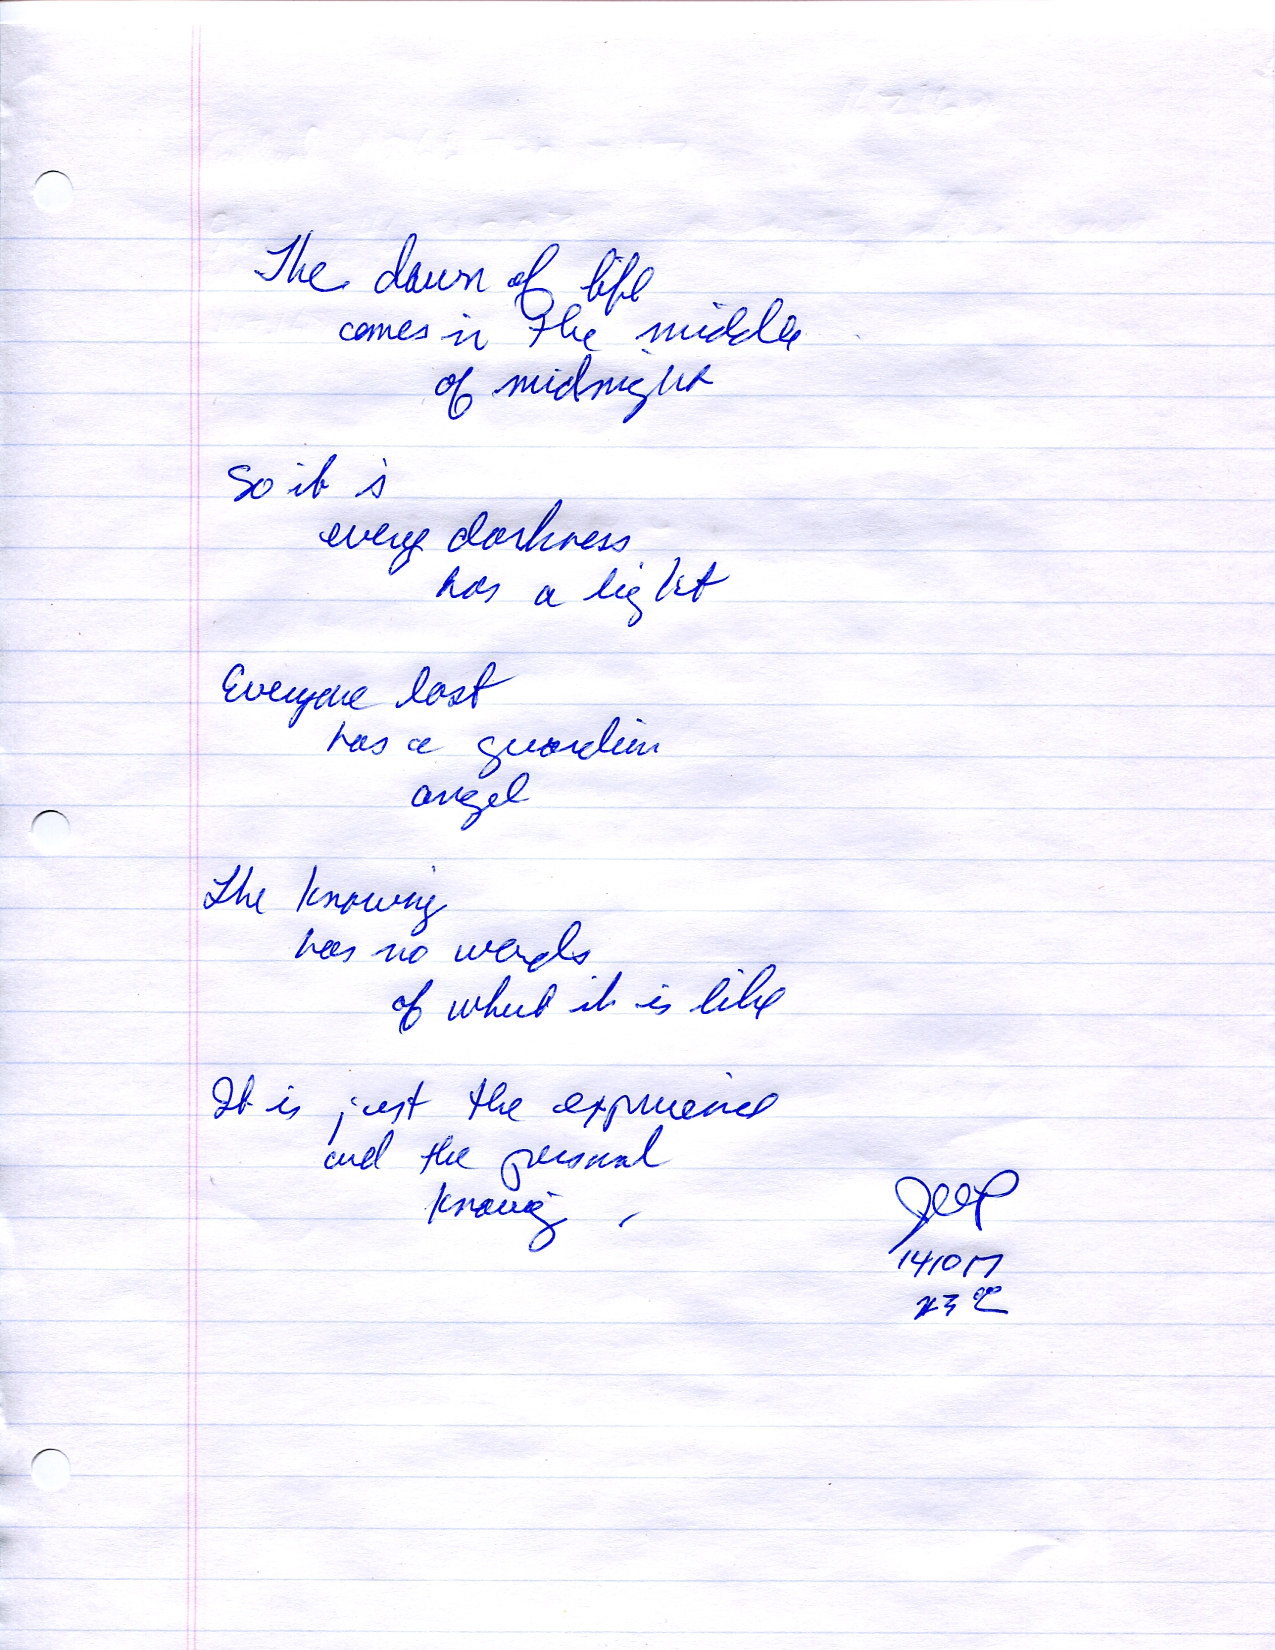 The dawn of life
comes in the middle
of midnight
So it is
every darkness
has a light
Everyone lost
has a guardian
angel
The knowing
has no words
of what it is like
It is just the experience
and the personal
knowing